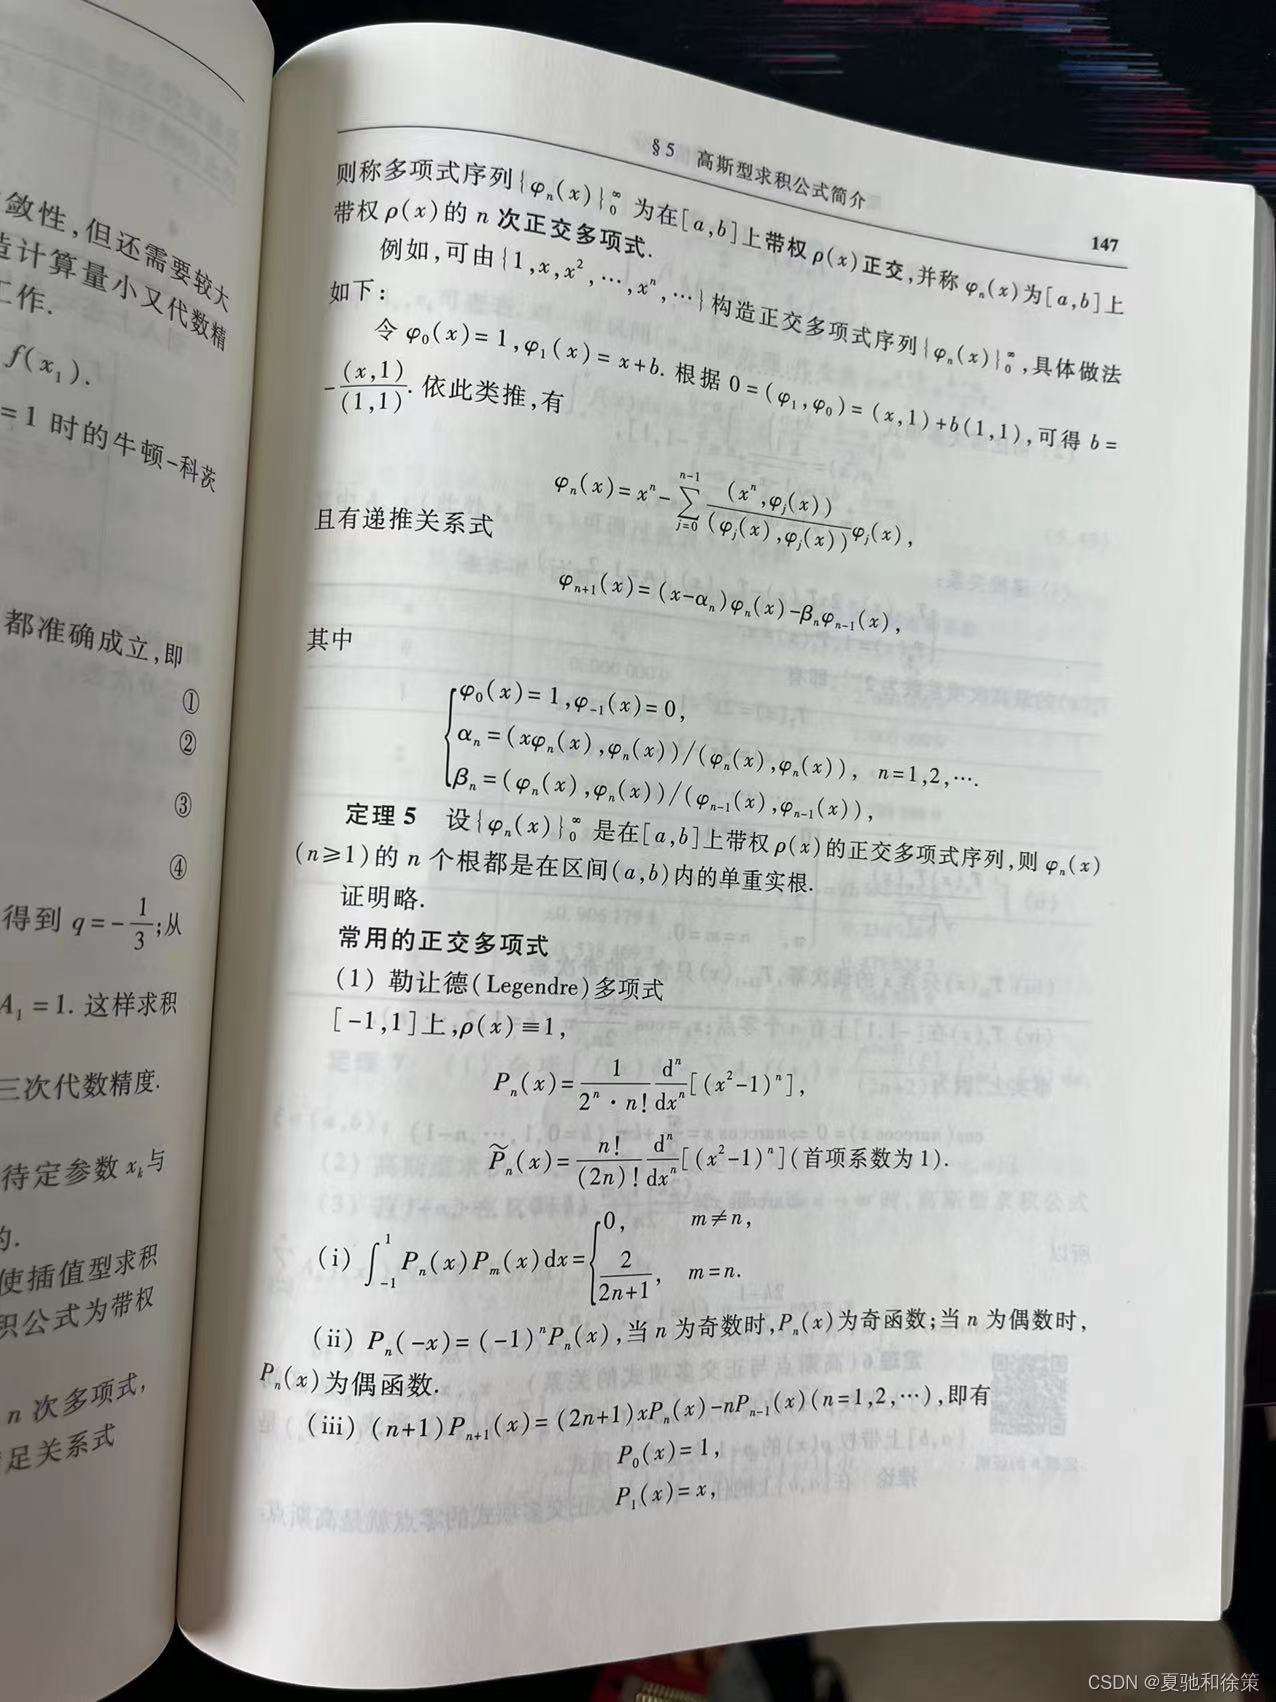 敛性,但还需要较大
造计算量小又代数精
工作.
f(x₁).
=1 时的牛顿-科茨
都准确成立,即
①
②
③
④
得到 q=-1/3;从
A₁=1. 这样求积
三次代数精度.
待定参数 xₖ与
的.
使插值型求积
积公式为带权
n 次多项式,
足关系式
§5 高斯型求积公式简介
147
则称多项式序列{φₙ(x)}₀^∞ 为在[a,b]上带权ρ(x)正交,并称 φₙ(x)为[a,b]上
带权 ρ(x)的 n 次正交多项式.
例如,可由{1,x,x²,⋯,xⁿ,⋯}构造正交多项式序列{φₙ(x)}₀^∞,具体做法
如下:
令 φ₀(x)=1,φ₁(x)=x+b. 根据 0=(φ₁,φ₀)=(x,1)+b(1,1),可得 b=
-(x,1)/(1,1). 依此类推,有
φₙ(x)=xⁿ-∑_{j=0}^{n-1} (xⁿ,φⱼ(x))/(φⱼ(x),φⱼ(x)) φⱼ(x),
且有递推关系式
φₙ₊₁(x)=(x-αₙ)φₙ(x)-βₙφₙ₋₁(x),
其中
φ₀(x)=1,φ₋₁(x)=0,
αₙ=(xφₙ(x),φₙ(x))/(φₙ(x),φₙ(x)), n=1,2,⋯.
βₙ=(φₙ(x),φₙ(x))/(φₙ₋₁(x),φₙ₋₁(x)),
定理 5 设{φₙ(x)}₀^∞ 是在[a,b]上带权 ρ(x)的正交多项式序列,则 φₙ(x)
(n≥1)的 n 个根都是在区间(a,b)内的单重实根.
证明略.
常用的正交多项式
(1) 勒让德(Legendre)多项式
[-1,1]上,ρ(x)≡1,
Pₙ(x)=1/(2ⁿ·n!) dⁿ/dxⁿ[(x²-1)ⁿ],
P̃ₙ(x)=n!/(2n)! dⁿ/dxⁿ[(x²-1)ⁿ](首项系数为1).
(i) ∫₋₁¹ Pₙ(x)Pₘ(x)dx={0, m≠n,
2/(2n+1), m=n.
(ii) Pₙ(-x)=(-1)ⁿPₙ(x),当 n 为奇数时,Pₙ(x)为奇函数;当 n 为偶数时,
Pₙ(x)为偶函数.
(iii) (n+1)Pₙ₊₁(x)=(2n+1)xPₙ(x)-nPₙ₋₁(x)(n=1,2,⋯),即有
P₀(x)=1,
P₁(x)=x,
CSDN @夏驰和徐策